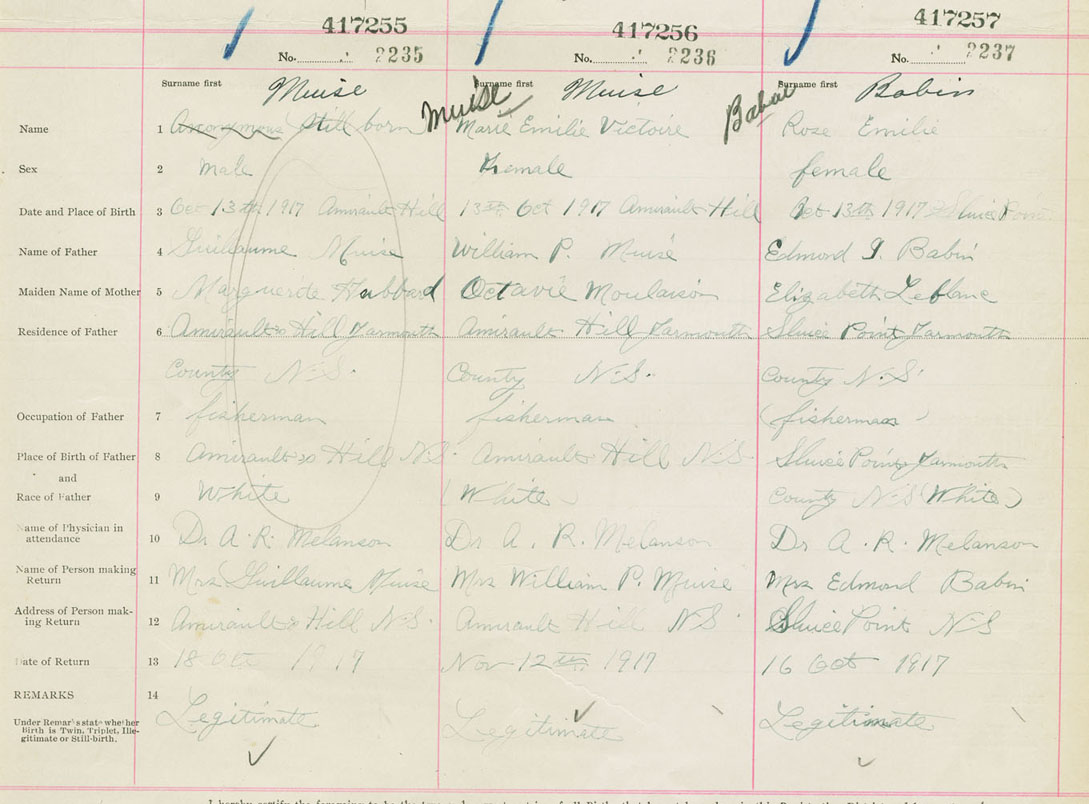 417255 417256 417257
No. 2235 No. 2236 No. 2237
Surname first Muise Surname first Muise Surname first Babin
Muise Babin
Name 1 Anonymous Still born Marie Emilie Victoire Rose Emilie
Sex 2 Male Female female
Date and Place of Birth 3 Oct 13th 1917 Amirault Hill 13th Oct 1917 Amirault Hill Oct 13th 1917 Sluice Point
Name of Father 4 Guillaume Muise William P. Muise Edmond J. Babin
Maiden Name of Mother 5 Marguerite Hubbard Octavie Moulaison Elizabeth Leblanc
Residence of Father 6 Amirault's Hill Yarmouth Amirault Hill Yarmouth Sluice Point Yarmouth
County N.S. County N.S. County N.S.
Occupation of Father 7 fisherman fisherman (fisherman)
Place of Birth of Father 8 Amirault's Hill N.S. Amirault Hill N.S. Sluice Point Yarmouth
and
Race of Father 9 White (White) County N.S (White)
Name of Physician in
attendance 10 Dr A. R. Melanson Dr A. R. Melanson Dr A. R. Melanson
Name of Person making
Return 11 Mrs Guillaume Muise Mrs William P. Muise Mrs Edmond Babin
Address of Person mak-
ing Return 12 Amirault's Hill N.S. Amirault Hill N.S. Sluice Point N.S
Date of Return 13 18 Oct 1917 Nov 12th 1917 16 Oct 1917
REMARKS 14
Legitimate Legitimate Legitimate
Under Remarks state whether
Birth is Twin, Triplet, Ille-
gitimate or Still-birth.